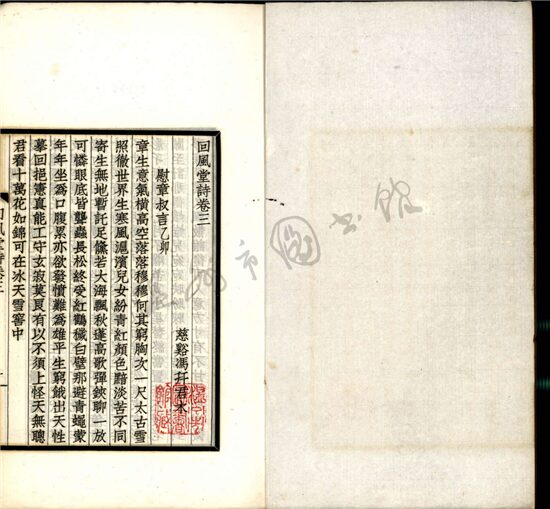 回風堂詩卷三
慈谿馮幵君木
慰章叔言乙卯
章生意氣橫高空落落穆穆何其窮胸次一尺太古雪
照徹世界生寒風滬濱兒女紛青紅顏色黯淡苦不同
寄生無地暫託足儼若大海飄秋蓬高歌彈鋏聊一放
可憐眼底皆聾蟲長松終受紅鶴穢白璧那避青蠅蒙
年年坐為口腹累亦欲發憤難為雄平生窮餓出天性
摹回挹憲真能工守玄寂莫良有以不須上怪天無聰
君看十萬花如錦可在冰天雪窖中